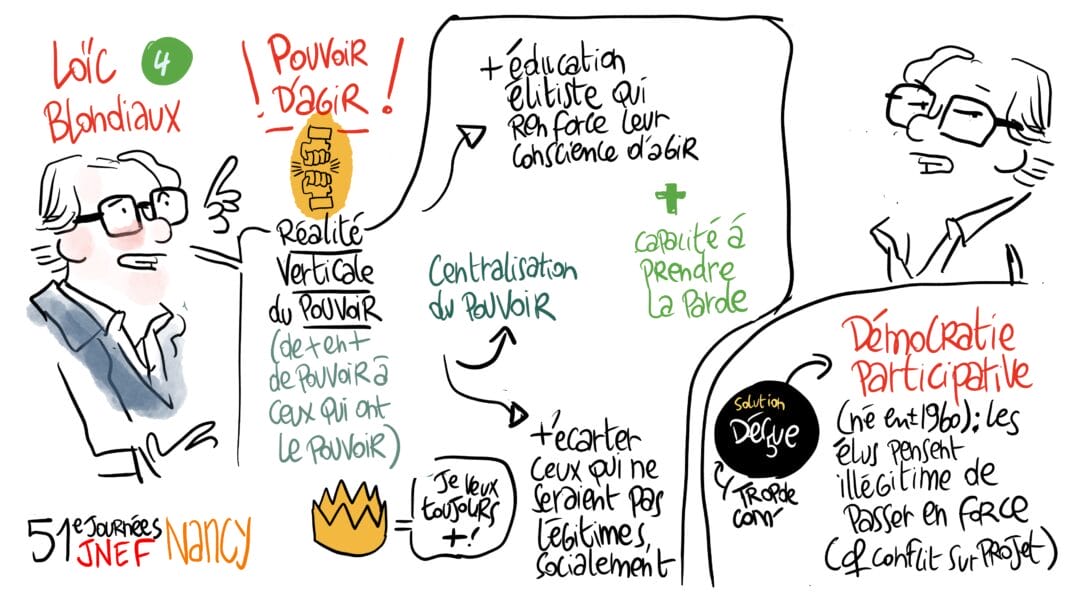 Loïc
Blondiaux
4
! Pouvoir
d'agir !
Réalité
Verticale
du Pouvoir
(de + en +
de pouvoir à
ceux qui ont
le pouvoir)
+ éducation
élitiste qui
renforce leur
conscience d'agir
+
capacité à
prendre
la parde
Centralisation
du Pouvoir
+ écarter
ceux qui ne
seraient pas
légitimes,
socialement
=
Je veux
toujours
+!
51e Journées
JNEF
Nancy
Solution
Déçue
Trop de
com'
Démocratie
Participative
(né en ± 1960); les
élus pensent
illégitime de
passer en force
(cf conflit sur projet)